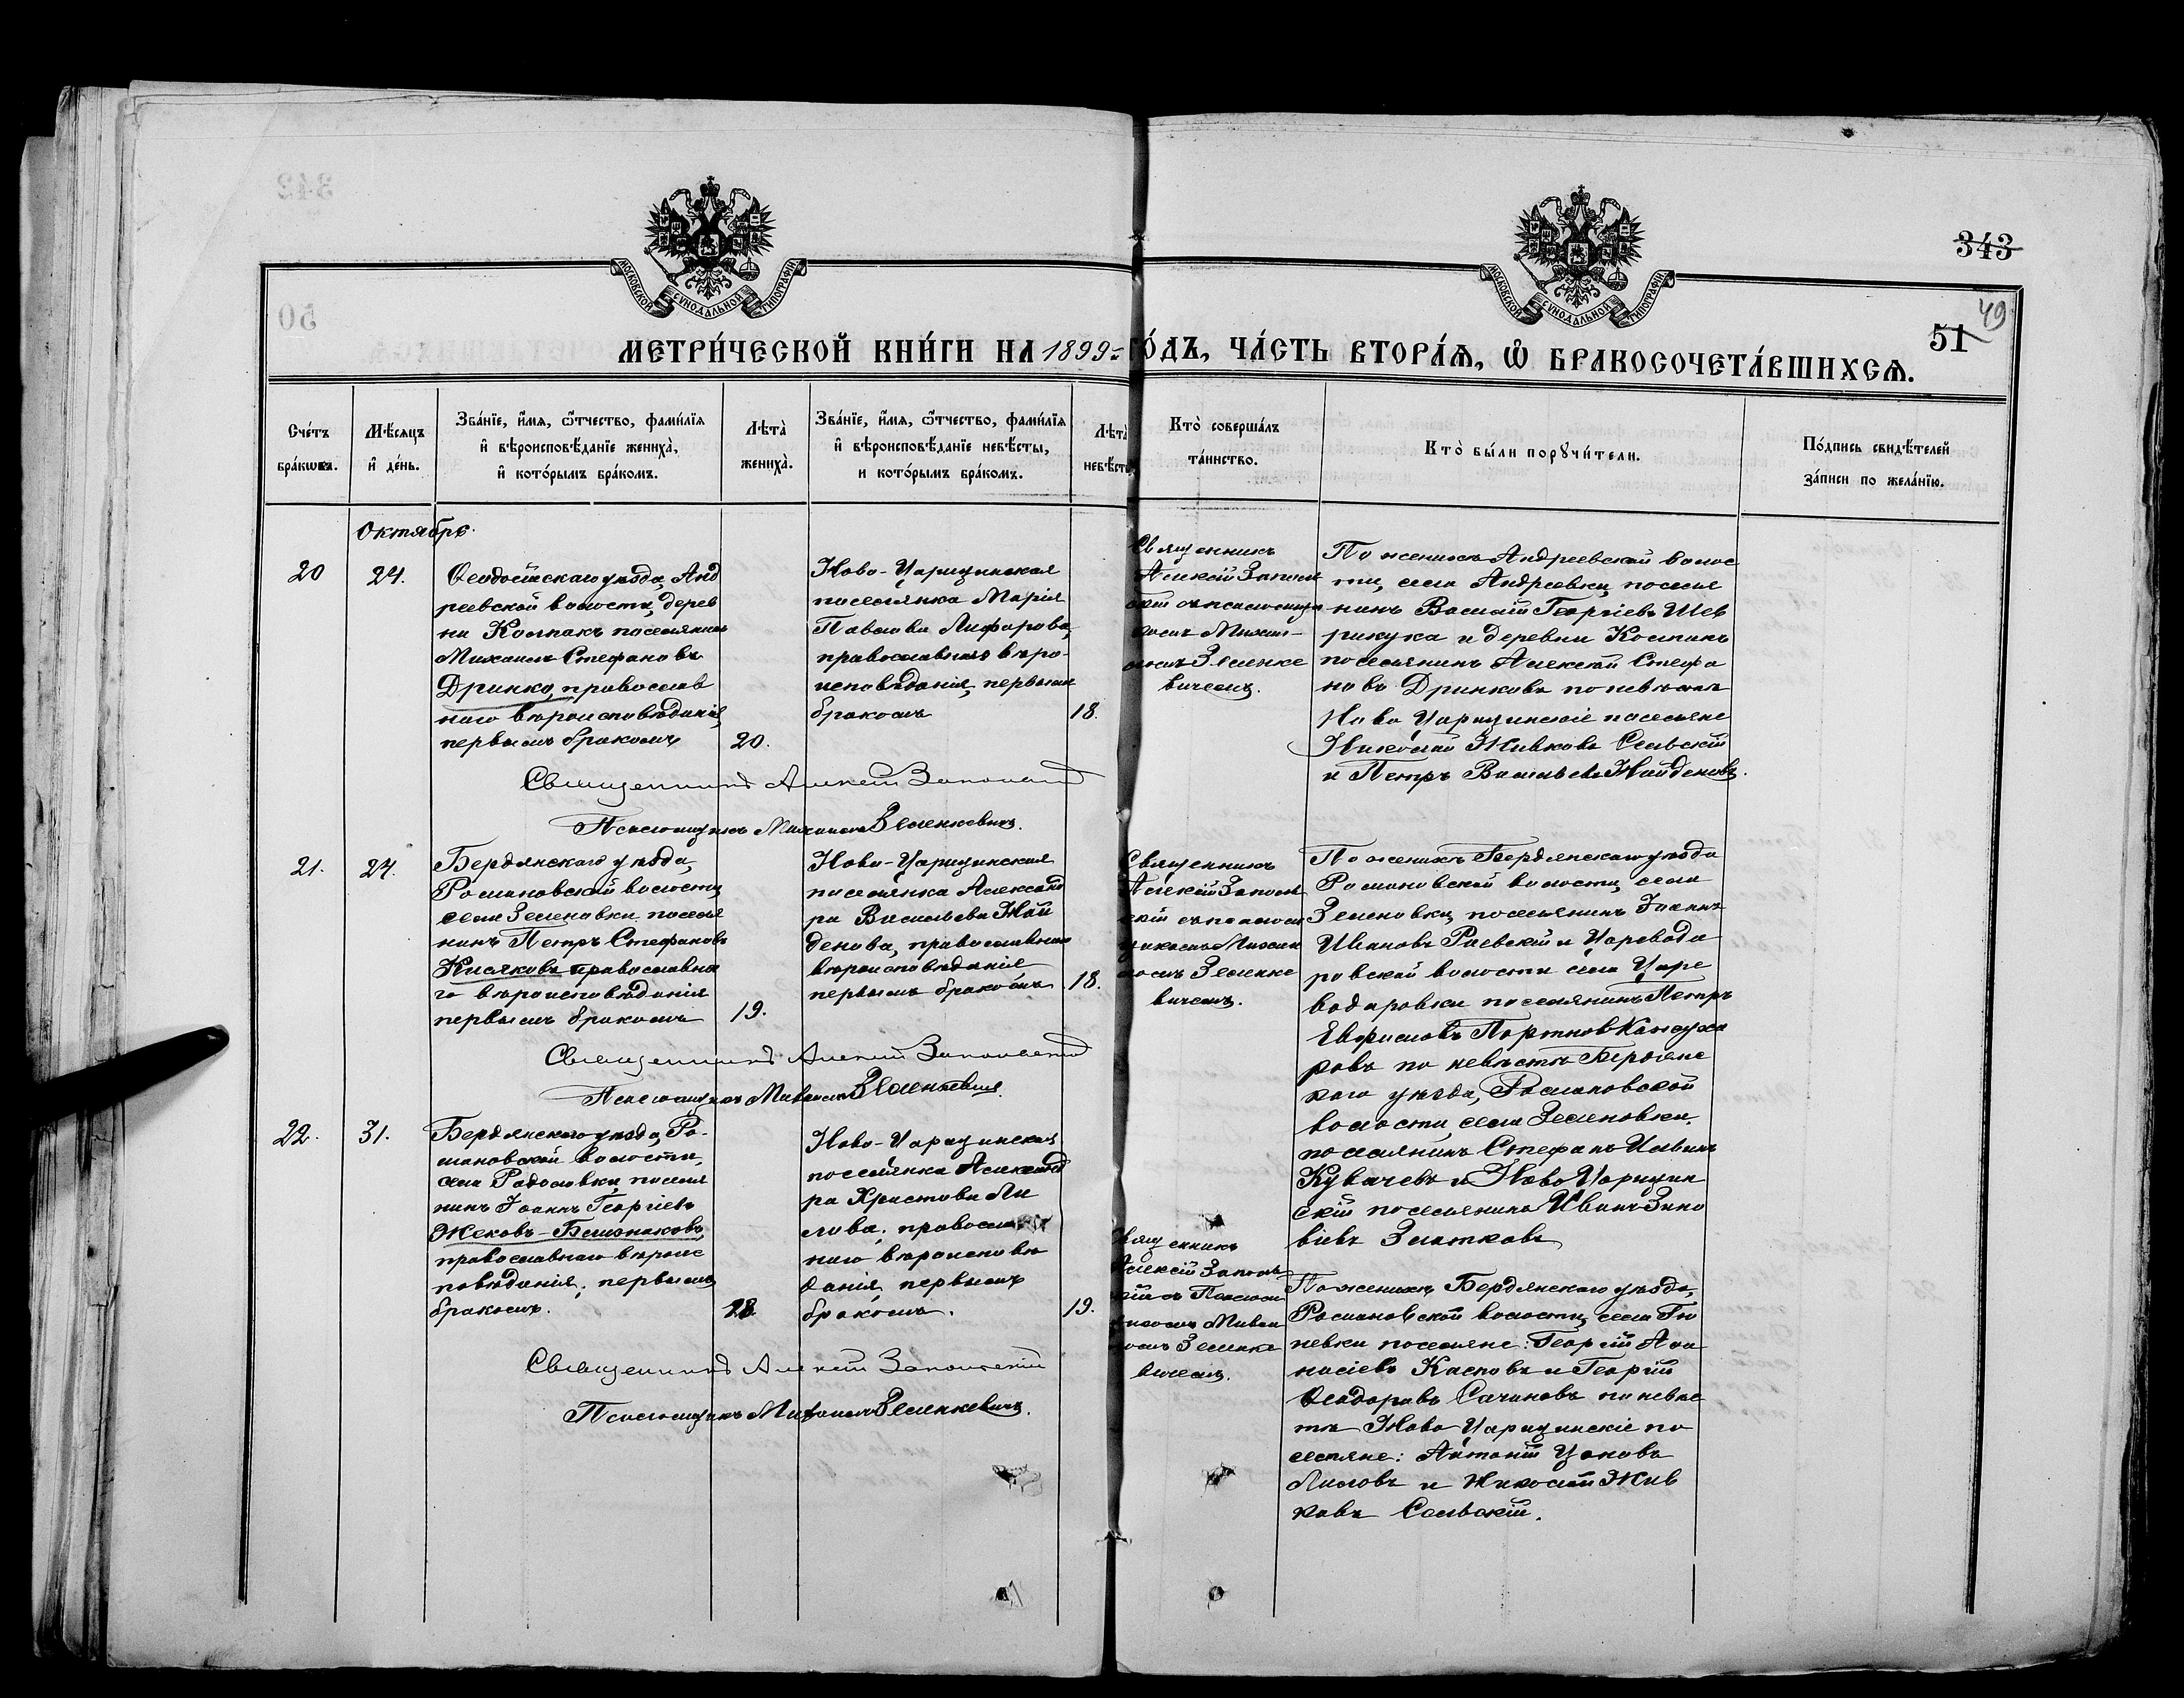 343
МОСКОВСКОЙ СУНОДАЛЬНОЙ ТИПОГРАФІИ
МОСКОВСКОЙ СУНОДАЛЬНОЙ ТИПОГРАФІИ
49
51
МЕТРИ́ЧЕСКОЙ КНИ́ГИ НА 1899 ГО́ДЪ, ЧА́СТЬ ВТОРА́Ѧ, Ѽ БРАКОСОЧЕТА́ВШИХСѦ.
Сче́тъ бра́кωвъ.
Мѣ́сяцъ и҆ де́нь.
Зва́нїе, и҆́мѧ, ѻ҆́тчество, фами́лїѧ
и҆ вѣроисповѣ́данїе жениха̀,
и҆ кото́рымъ бра́комъ.
Лѣта̀ жениха̀.
Зва́нїе, и҆́мѧ, ѻ҆́тчество, фами́лїѧ
и҆ вѣроисповѣ́данїе невѣ́сты,
и кото́рымъ бра́комъ.
Лѣта̀ невѣ́сты
Кто̀ соверша́лъ та́инство.
Кто̀ бы́ли порꙋчи́тели.
По́дпись свидѣ́телей за́писи по жела́нїю.
Октябрь.
20
24.
Ѳеодосійскаго уѣзда, Анд
реевской волости, дерев
ни Колпакъ поселянинъ
Михаилъ Стефановъ
Дринко, православ
наго вѣроисповѣданія,
первымъ бракомъ
20.
Ново-Царицинская
поселянка Марія
Павлова Лифарова,
православнаго вѣро-
исповѣданія, первымъ
бракомъ
18.
Священникъ
Алексій Заполь
скій съ псаломщи
комъ Михаи-
ломъ Зеленке
вичемъ.
По женихѣ Андреевской волос
ти, села Андреевки, поселя
нинъ Василій Георгіевъ Шев
рикука и деревни Колпакъ
поселянинъ Алексѣй Стефа
новъ Дринковъ по невѣстѣ
Ново Царицинскіе поселяне
Николай Живковъ Сельскій
и Петръ Васильевъ Найденовъ.
Священникъ Алексій Запольскій
Псаломщикъ Михаилъ Зеленкевичъ.
21.
24.
Бердянскаго уѣзда,
Романовской волости,
села Зеленовки поселя
нинъ Петръ Стефановъ
Кисяковъ православна
го вѣроисповѣданія
первымъ бракомъ
19.
Ново-Царицинская
поселянка Александ
ра Васильева Най
денова, православнаго
вѣроисповѣданія
первымъ бракомъ
18.
Священникъ
Алексій Заполь
скій съ псалом
щикомъ Михаи
ломъ Зеленке
вичемъ.
По женихѣ Бердянскаго уѣзда
Романовской волости, села
Зеленовки, поселянинъ Іоаннъ
Ивановъ Раевскій и Царевода
ровской волости села Царе
водаровки поселянинъ Петръ
Евфимовъ Портнов Кожуха
ровъ по невѣстѣ Бердянс
каго уѣзда, Романовской
волости, села Зеленовки,
поселянинъ Стефанъ Ильинъ
Кувачевъ и Ново Царицин
скій поселянинъ Иванъ Зино
віевъ Златковъ
Священникъ Алексій Запольскій
Псаломщикъ Михаилъ Зеленкевичъ.
22.
31.
Бердянскаго уѣзда, Ро-
мановской волости,
села Радоловки, поселя
нинъ Іоаннъ Георгіевъ
Жековъ-Близнаковъ,
православнаго вѣроис
повѣданія, первымъ
бракомъ.
18
Ново-Царицинская
поселянка Александ
ра Христова Ли
лова, православ
наго вѣроисповѣ
данія первымъ
бракомъ.
19.
Священникъ
Алексій Заполь
скій съ Псалом
щикомъ Михаи
ломъ Зеленке
вичемъ.
По женихѣ Бердянскаго уѣзда,
Романовской волости, села Гю
невки поселяне: Георгій Афа
насіевъ Касповъ и Георгій
Ѳеодоровъ Сачановъ по невѣс
тѣ Ново Царицинскіе по
селяне: Антоній Цоновъ
Лиловъ и Николай Жив
ковъ Сельскій.
Священникъ Алексій Запольскій
Псаломщикъ Михаилъ Зеленкевичъ.